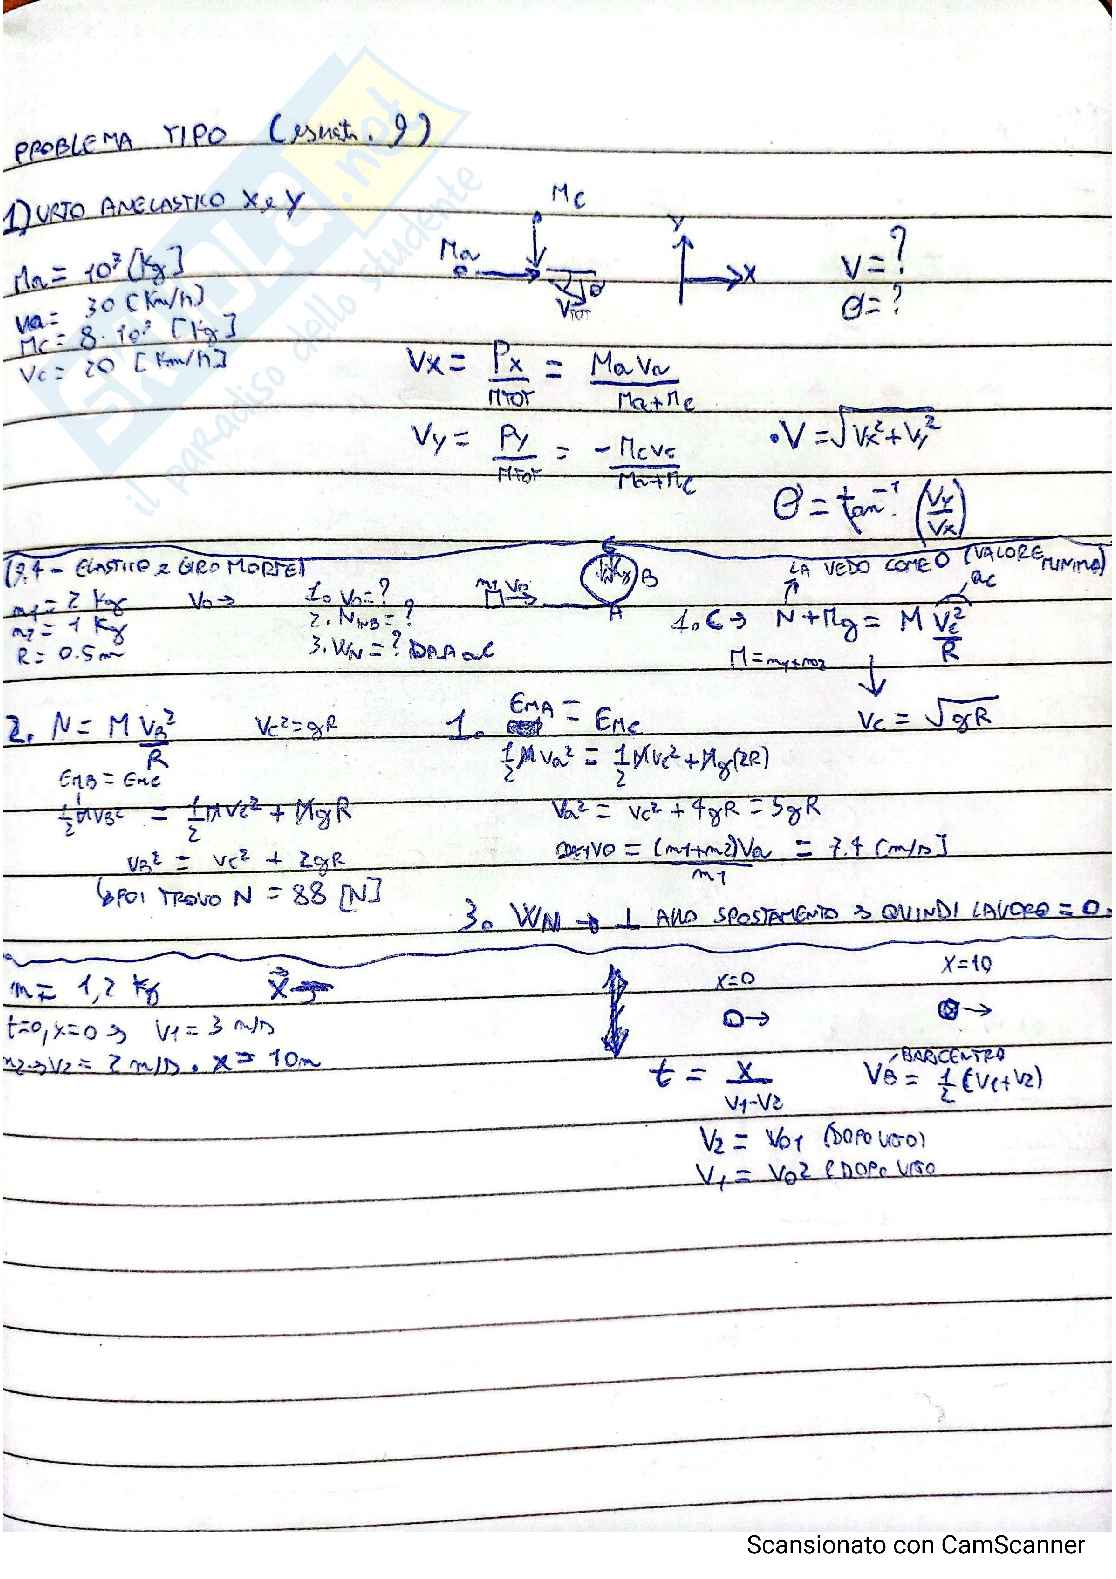 PROBLEMA TIPO (esercit. 9)
1) URTO ANELASTICO X e Y
Ma = 10³ [Kg]
va = 30 [Km/h]
Mc = 8·10³ [Kg]
Vc = 20 [Km/h]
Mc
Ma
VTOT
θ
Y
X
V = ?
θ = ?
Vx = Px/MTOT = MaVa/(Ma+Mc)
Vy = Py/MTOT = -McVc/(Ma+Mc)
• V = √(Vx²+Vy²)
θ = tan⁻¹ (Vy/Vx)
(9.4 - ELASTICO e GIRO MORTE)
m1 = 2 Kg
m2 = 1 Kg
R = 0.5 m
V0 →
1. V0 = ?
2. N IN B = ?
3. WN = ? DA A a C
M1 V0
C
B
A
LA VEDO COME 0 (VALORE MINIMO)
ac
1. C → N + Mg = M Vc²/R
M = m1+m2
Vc = √gR
2. N = M VB²/R
Vc² = gR
EMB = EMC
½MVB² = ½MVc² + MgR
VB² = Vc² + 2gR
POI TROVO N = 88 [N]
1. EMA = EMC
½MVa² = ½MVc² + Mg(2R)
Va² = Vc² + 4gR = 5gR
V0 = (m1+m2)Va/m1 = 7.4 [m/s]
3. WN → ⊥ ALLO SPOSTAMENTO → QUINDI LAVORO = 0.
m = 1,2 Kg
X →
t=0, x=0 → V1 = 3 m/s
m2 → V2 = 2 m/s. x = 10m
X=0
X=10
t = X/(V1-V2)
BARICENTRO
VB = ½ (V1+V2)
V2 = V01 (DOPO URTO)
V1 = V02 (DOPO URTO
SKUOLA.net
il paradiso dello studente
Scansionato con CamScanner